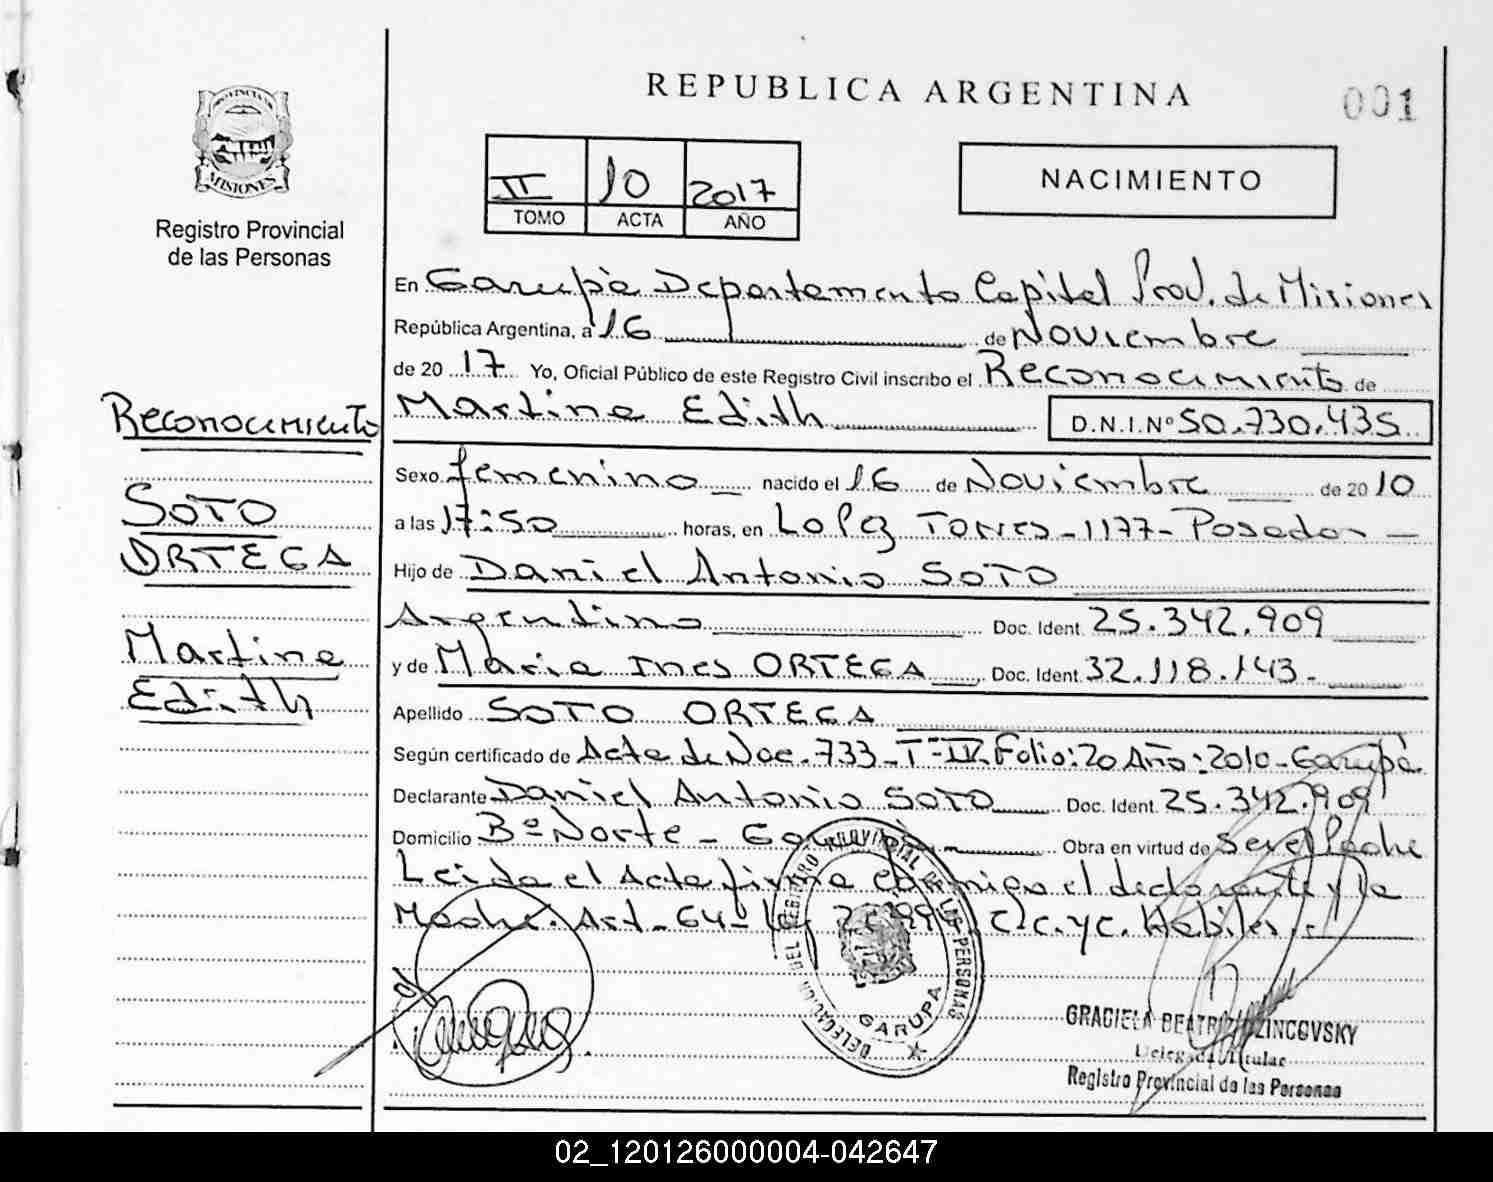 REPUBLICA ARGENTINA
001
PROVINCIA DE
MISIONES
Registro Provincial
de las Personas
II 10 2017
TOMO ACTA AÑO
NACIMIENTO
En Garupà Departamento Capital Prov. de Misiones
República Argentina, a 16 de Noviembre
de 20 17 Yo, Oficial Público de este Registro Civil inscribo el Reconocimiento de
Martina Edith D.N.I.Nº 50.730.435
Reconocimiento
SOTO
ORTEGA
Martina
Edith
Sexo femenino nacido el 16 de Noviembre de 20 10
a las 17:50 horas, en Lopez Torres - 1177 - Posadas -
Hijo de Daniel Antonio SOTO
Argentino Doc. Ident. 25.342.909
y de Maria Ines ORTEGA Doc. Ident. 32.118.143 -
Apellido SOTO ORTEGA
Según certificado de Acta de Nac. 733 - Tº IV Folio: 20 Año: 2010 - Garupà
Declarante Daniel Antonio SOTO Doc. Ident. 25.342.909
Domicilio Bº Norte - Garupà Obra en virtud de ser el Padre
Leida el Acta firma conmigo el declarante y la
Madre. Art - 64 - C.C. y C. Habiles
DELEGACION DEL REGISTRO PROVINCIAL DE LAS PERSONAS
GARUPA
GRACIELA BEATRIZ
Delegada Titular
Registro Provincial de las Personas
02_120126000004-042647